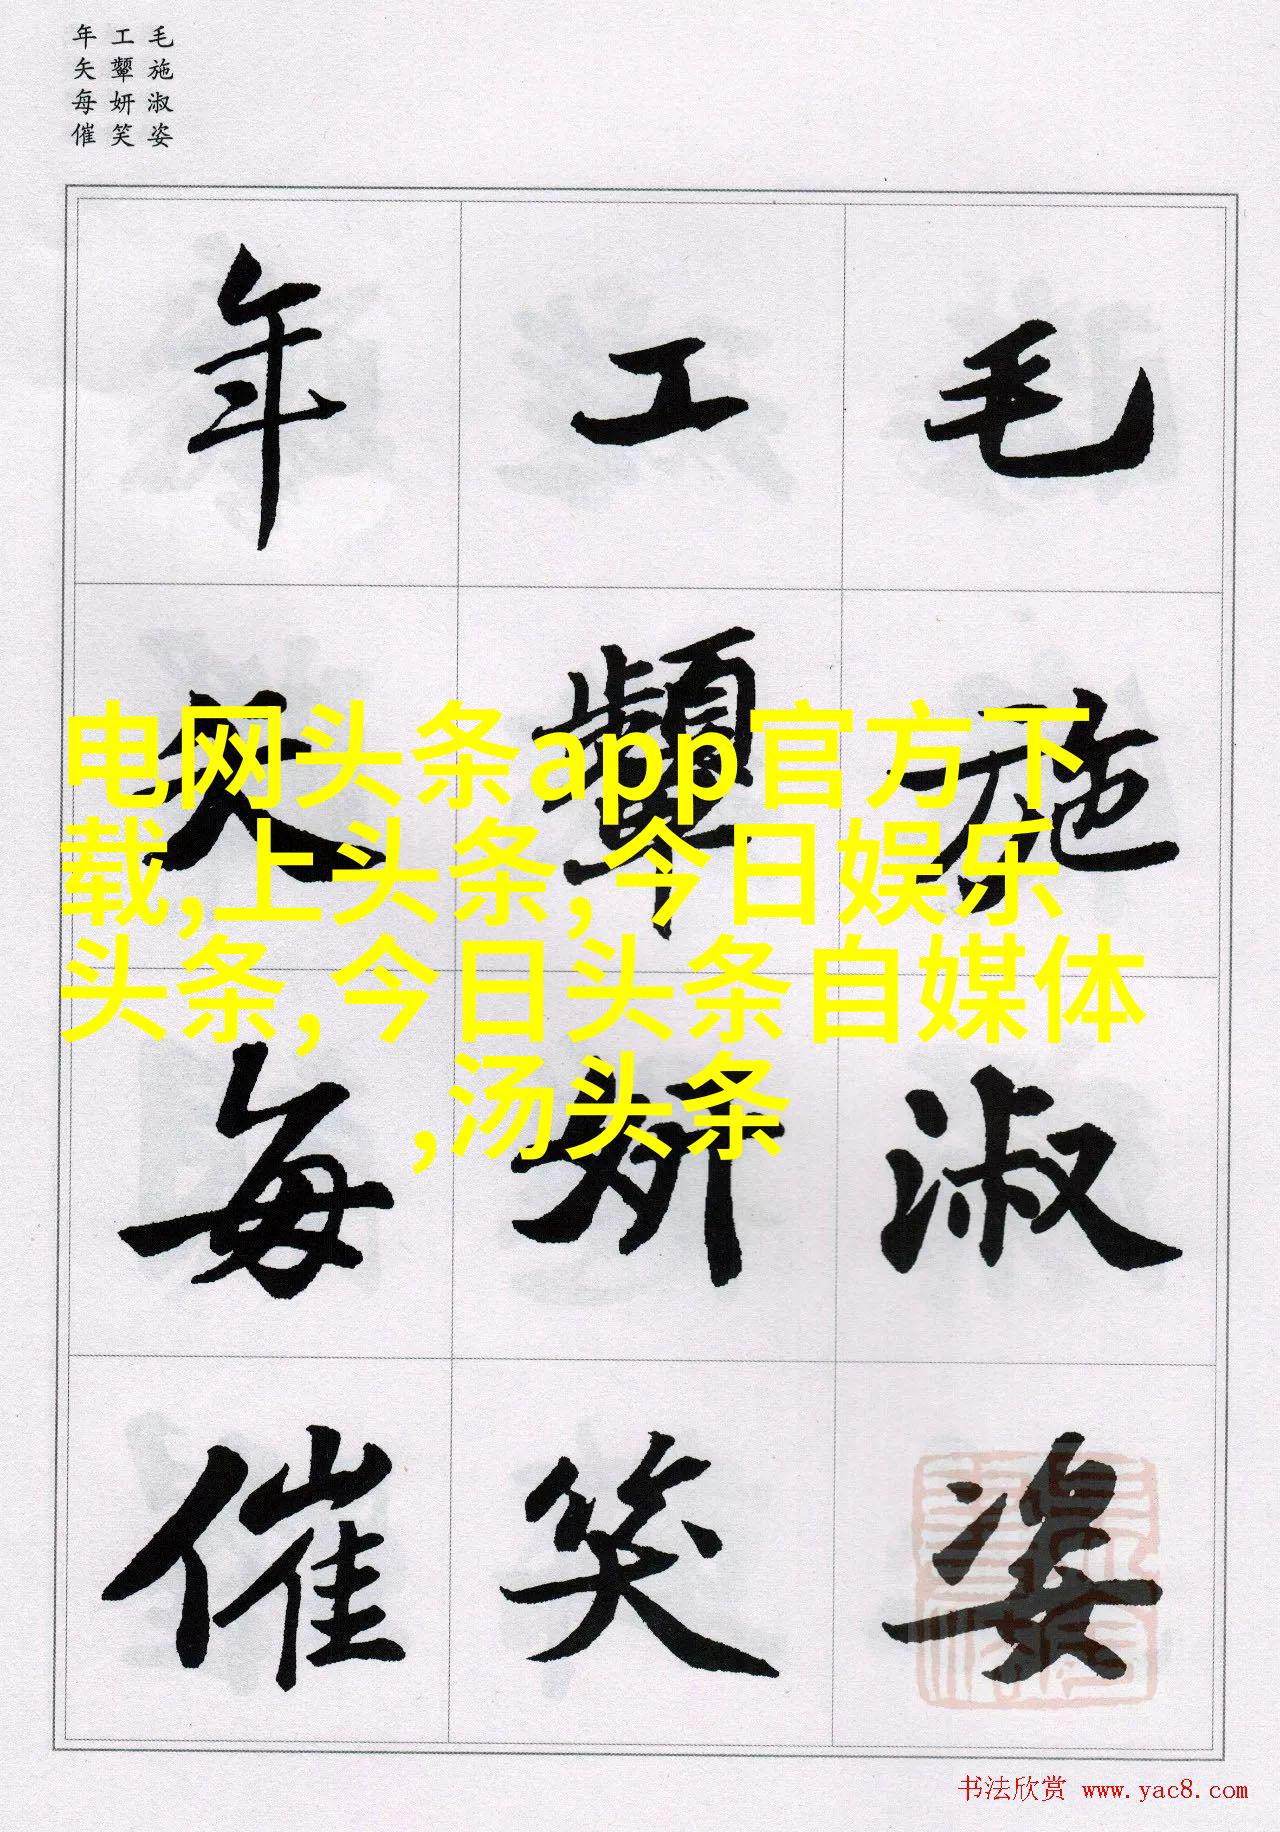 毛施淑姿
工颦妍笑
年矢每催
毛施淑姿
工颦妍笑
年矢每催
电网头条app官方下
载,上头条,今日娱乐
头条,今日头条自媒体
,汤头条
书法欣赏 www.yac8.com